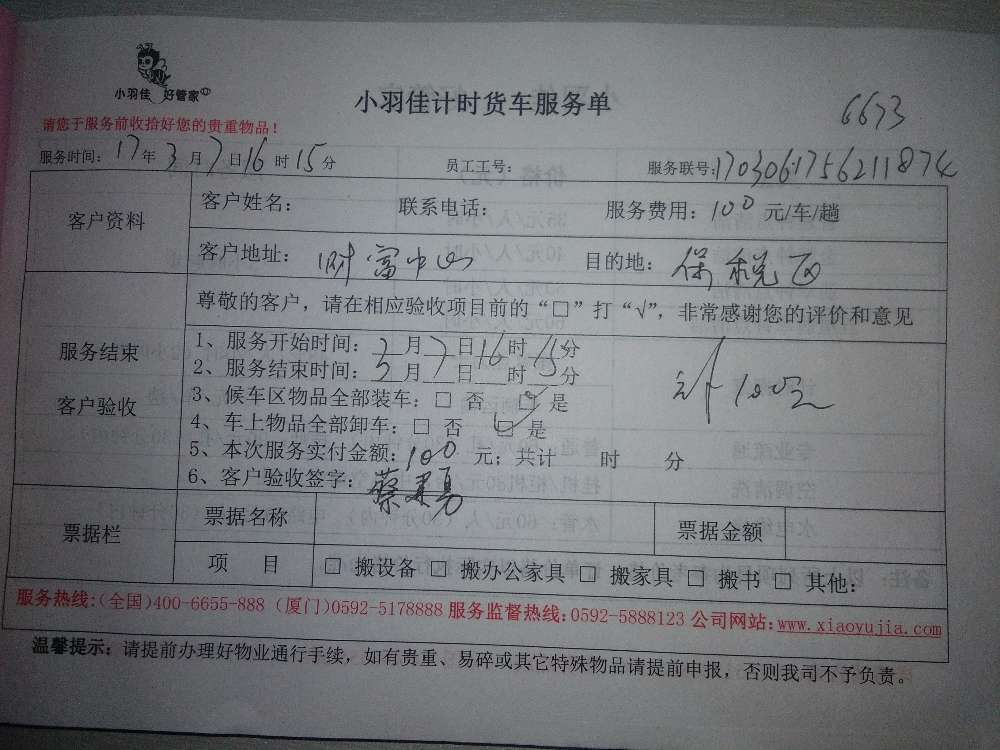 小羽佳 好管家
小羽佳计时货车服务单
6673
请您于服务前收拾好您的贵重物品！
服务时间：17年3月7日16时15分 员工工号： 服务联号：1703061756211874
客户资料
客户姓名： 联系电话： 服务费用：100元/车/趟
客户地址：财富中心 目的地：保税区
尊敬的客户，请在相应验收项目前的“□”打“√”，非常感谢您的评价和意见
服务结束
客户验收
1、服务开始时间：3月7日16时15分
2、服务结束时间：3月7日__时__分
3、候车区物品全部装车：□ 否 □ 是
4、车上物品全部卸车：□ 否 □ 是
5、本次服务实付金额：100元；共计 时 分
6、客户验收签字：蔡建勇
计100元
票据栏
票据名称 票据金额
项 目 □ 搬设备 □ 搬办公家具 □ 搬家具 □ 搬书 □ 其他：
服务热线:(全国)400-6655-888 (厦门)0592-5178888 服务监督热线:0592-5888123 公司网站:www.xiaoyujia.com
温馨提示：请提前办理好物业通行手续，如有贵重、易碎或其它特殊物品请提前申报，否则我司不予负责。